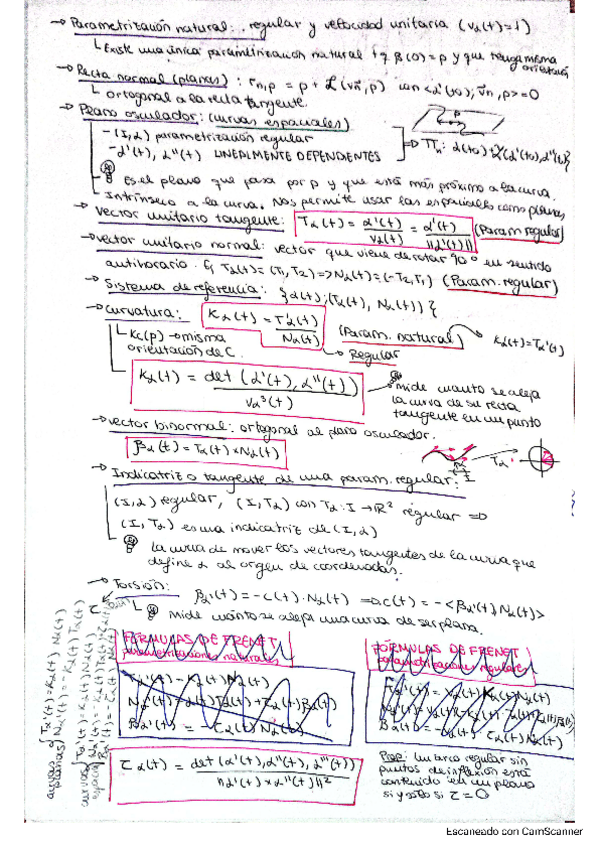 → Parametrización natural: regular y velocidad unitaria (vα(t)=1)
↳ Existe una única parametrización natural tq β(0)=p y que tenga misma orientación
→ Recta normal (planas): rn,p = p + L(vn,p) con <α'(t0), vn,p>=0
↳ ortogonal a la recta tangente.
→ Plano osculador: (curvas espaciales)
- (I,α) parametrización regular
- α'(t), α''(t) LINEALMENTE DEPENDIENTES
=> πn: α(t0)+L(α'(t0),α''(t0))
Es el plano que pasa por p y que está más próximo a la curva.
Intrínseco a la curva. Nos permite usar las espaciales como planas
→ Vector unitario tangente: Tα(t) = α'(t)/vα(t) = α'(t)/||α'(t)|| (Param regular)
→ vector unitario normal: vector que viene de rotar 90º en sentido
antihorario. Tα(t)=(T1,T2)=>Nα(t)=(-T2,T1) (Param. regular)
→ Sistema de referencia: {α(t);(Tα(t), Nα(t))}
→ curvatura: Kα(t) = T'α(t)/Nα(t) (Param. natural) Kα(t)=Tα'(t)
↳ Kc(p) → misma
orientación de C.
→ Regular
Kα(t) = det(α'(t), α''(t))/vα³(t)
mide cuanto se aleja
la curva de su recta
tangente en un punto
→ vector binormal: ortogonal al plano osculador.
βα(t) = Tα(t)×Nα(t)
Tα
→ Indicatriz o tangente de una param. regular:
(I,α) regular, (I,Tα) con Tα: I → R² regular =>
(I,Tα) es una indicatriz de (I,α)
La curva de mover los vectores tangentes de la curva que
define α al origen de coordenadas.
→ Torsión: βα'(t) = -τ(t)·Nα(t) => τ(t) = -<βα'(t),Nα(t)>
↳ mide cuánto se aleja una curva de ser plana.
FÓRMULAS DE FRENET
parametrizaciones naturales
FÓRMULAS DE FRENET
parametrizaciones regulares
curvas planas
curvas espaciales
τα(t) = det(α'(t),α''(t),α'''(t))/||α'(t)×α''(t)||²
Prop: Un arco regular sin
puntos de inflexión está
contenido en un plano
si y sólo si τ=0
Escaneado con CamScanner